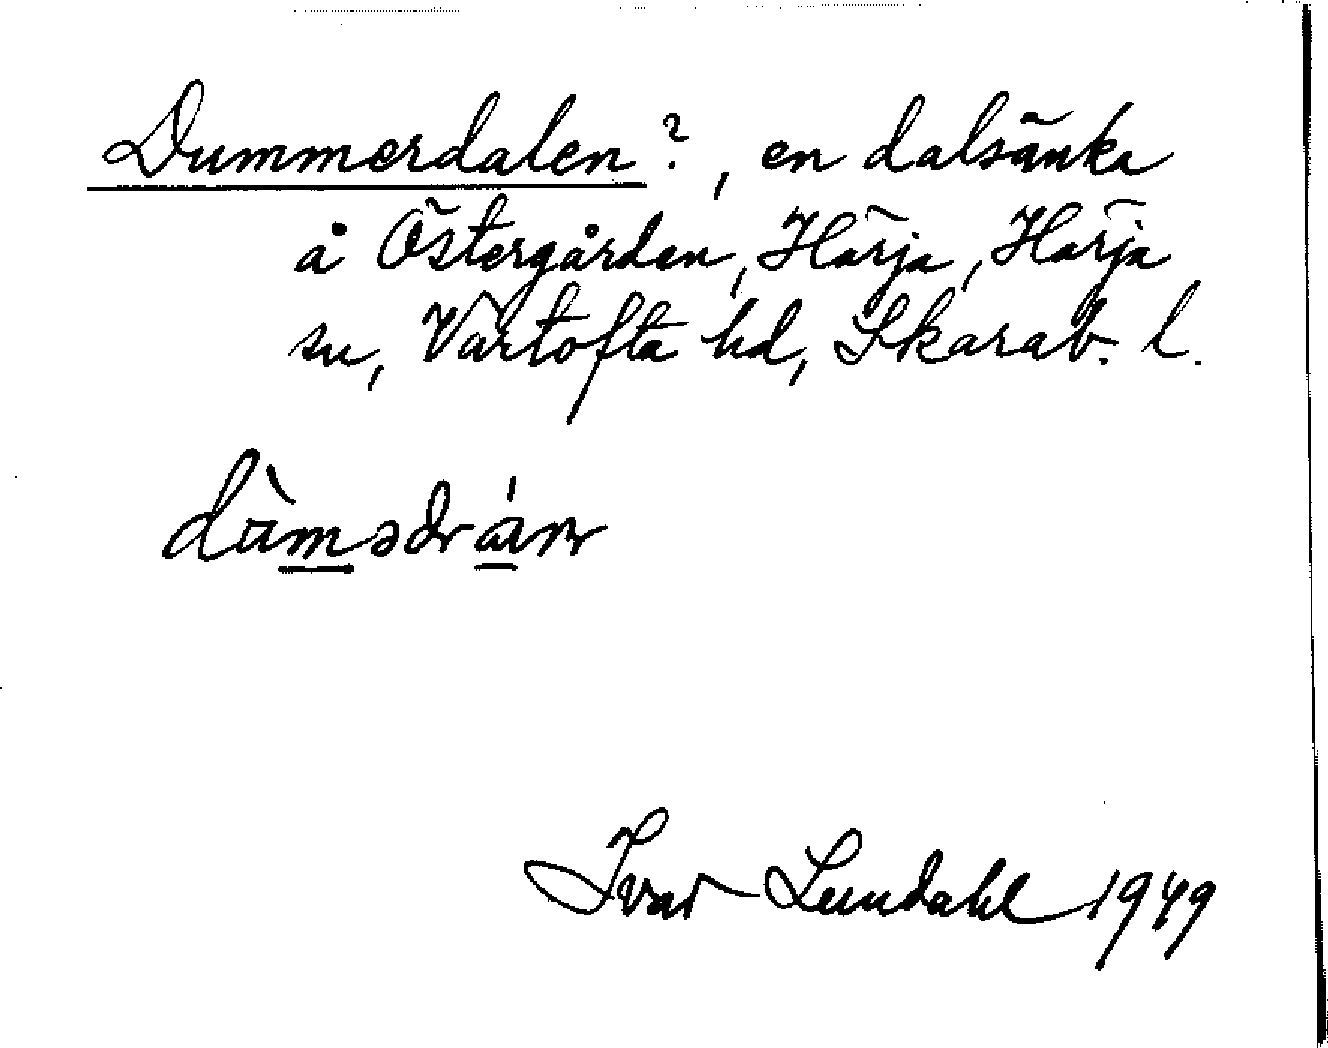 Dummerdalen?, en dalsänka
å Östergården, Härja, Härja
sn, Vartofta hd, Skarab. l.
Ivar Lundahl 1949